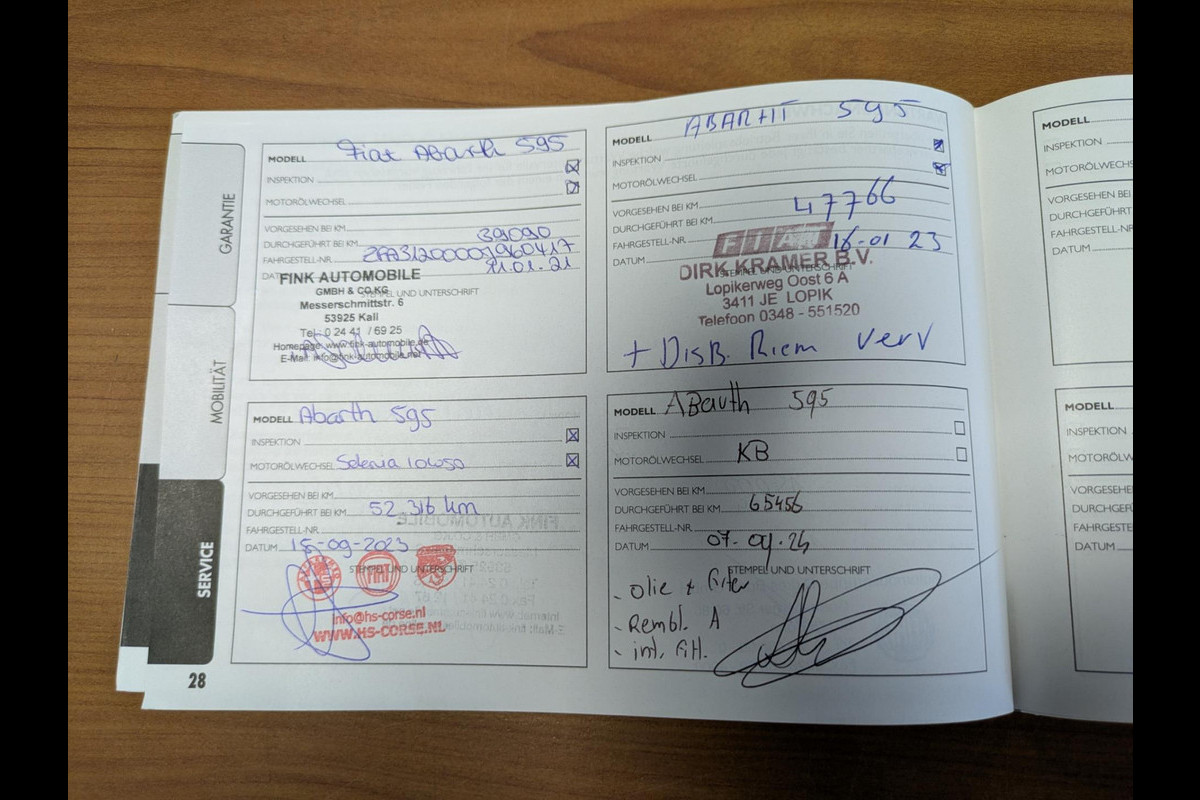 GARANTIE
MOBILITÄT
SERVICE
MODELL Fiat Abarth 595
INSPEKTION
MOTORÖLWECHSEL
VORGESEHEN BEI KM
DURCHGEFÜHRT BEI KM 39090
FAHRGESTELL-NR. ZFA31200009960417
DATUM 21.01.21
FINK AUTOMOBILE
GMBH & CO.KG
STEMPEL UND UNTERSCHRIFT
Messerschmittstr. 6
53925 Kall
Tel.: 0 24 41 / 69 25
Homepage: www.fink-automobile.de
E-Mail: info@fink-automobile.net
MODELL ABARTH 595
INSPEKTION
MOTORÖLWECHSEL
VORGESEHEN BEI KM
DURCHGEFÜHRT BEI KM 47766
FAHRGESTELL-NR.
DATUM 16-01 23
FIAT
DIRK KRAMER B.V.
STEMPEL UND UNTERSCHRIFT
Lopikerweg Oost 6 A
3411 JE LOPIK
Telefoon 0348 - 551520
+ DisB. Riem verv
MODELL Abarth 595
INSPEKTION
MOTORÖLWECHSEL Selenia 10w50
VORGESEHEN BEI KM
DURCHGEFÜHRT BEI KM 52.316 km
FAHRGESTELL-NR.
DATUM 15-09-2023
STEMPEL UND UNTERSCHRIFT
HS FIAT
info@hs-corse.nl
WWW.HS-CORSE.NL
MODELL ABarth 595
INSPEKTION
MOTORÖLWECHSEL KB
VORGESEHEN BEI KM
DURCHGEFÜHRT BEI KM 65456
FAHRGESTELL-NR.
DATUM 07-09-24
STEMPEL UND UNTERSCHRIFT
- olie + Filter
- Rembl. A
- int. Filt.
28
MODELL
INSPEKTION
MOTORÖLWECHS
VORGESEHEN BE
DURCHGEFÜHRT
FAHRGESTELL-N
DATUM
MODELL
INSPEKTION
MOTORÖLW
VORGESEHE
DURCHGEF
FAHRGESTE
DATUM